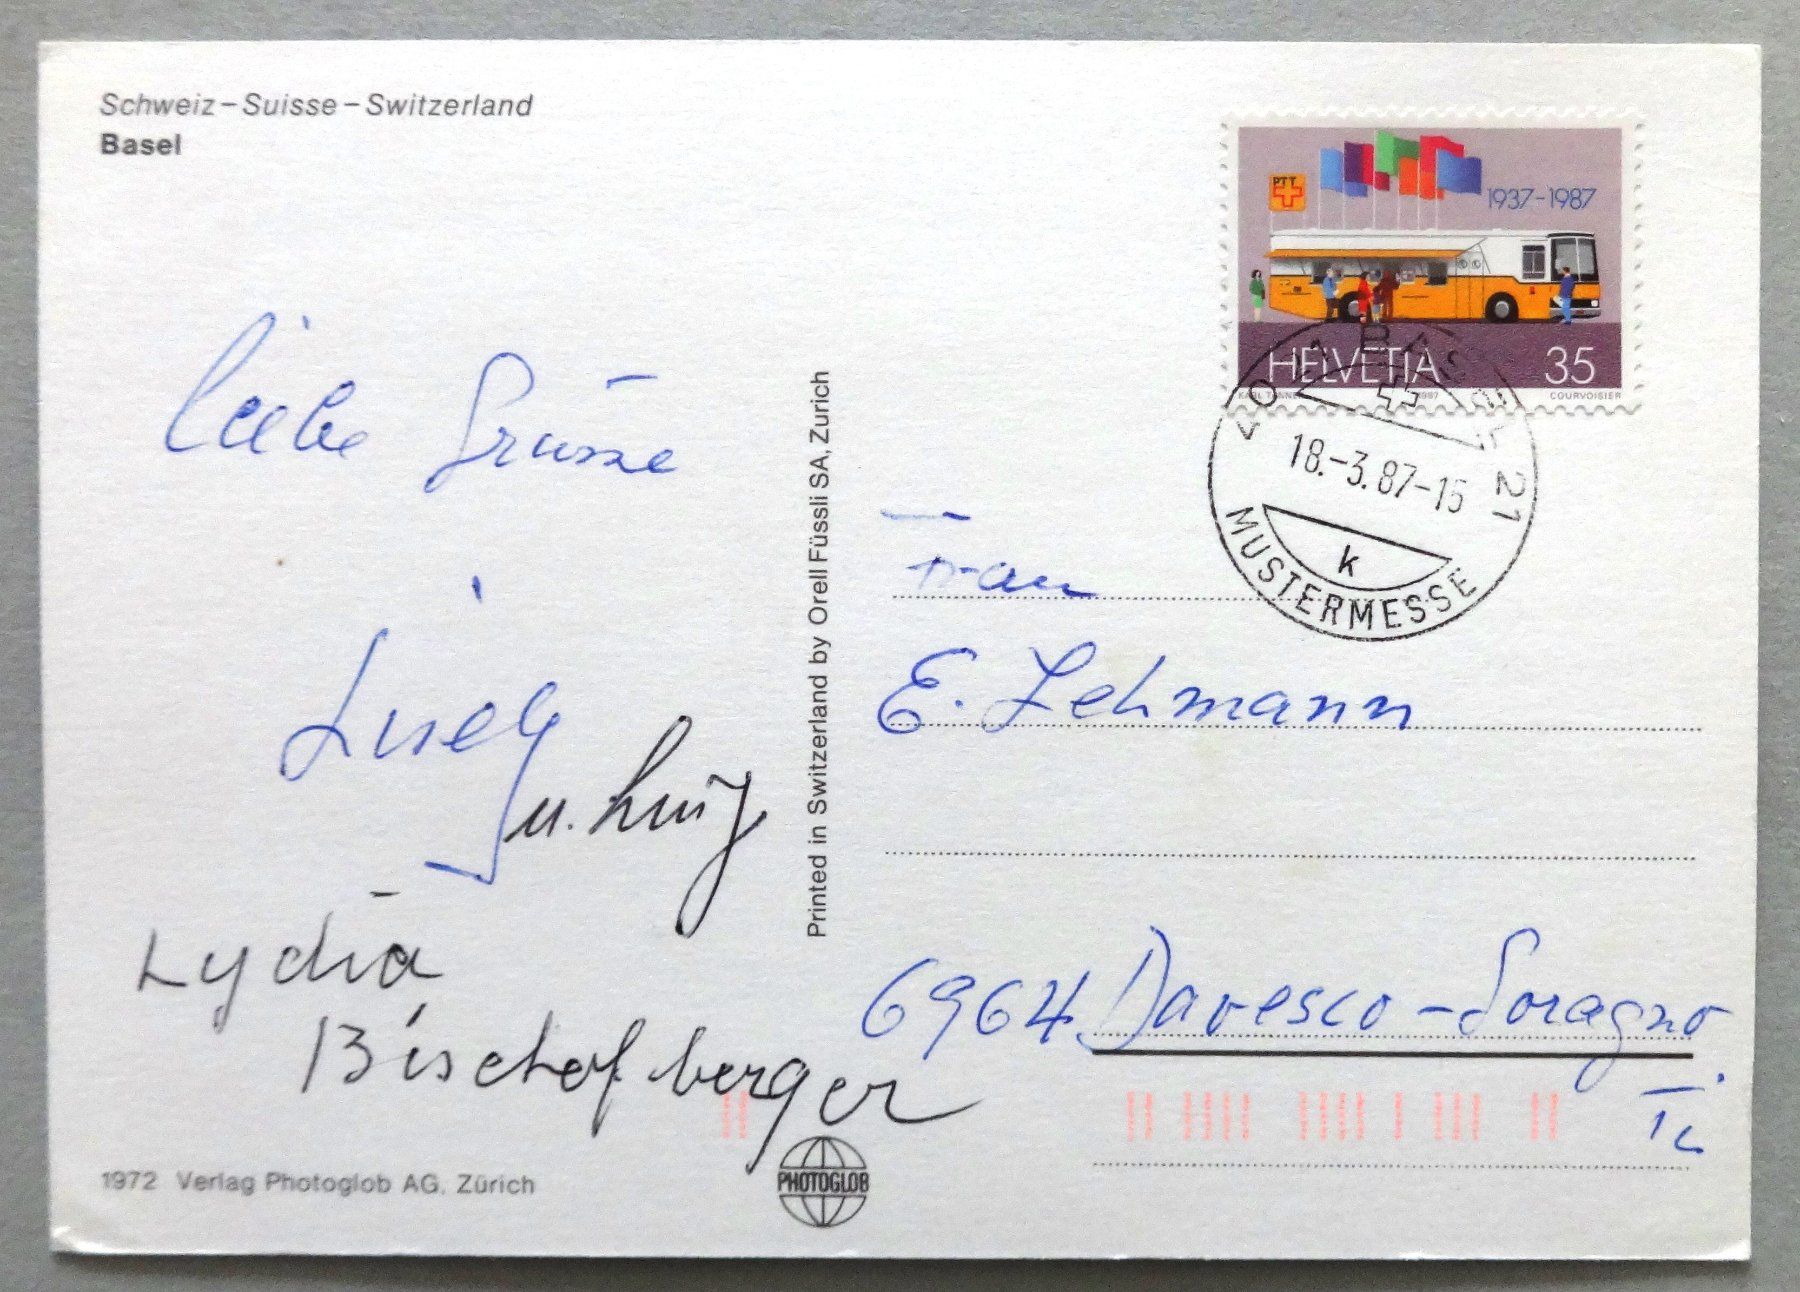 Schweiz – Suisse – Switzerland
Basel
PTT
1937-1987
HELVETIA 35
KARL TANNER 1987 COURVOISIER
4021 BASEL 21
18.-3.87-15
k
MUSTERMESSE
Liebe Grüsse
u.
Lydia
Bischofberger
Printed in Switzerland by Orell Füssli SA, Zurich
Frau
E. Lehmann
6964 Davesco-Soragno
Ti
1972 Verlag Photoglob AG, Zürich
PHOTOGLOB